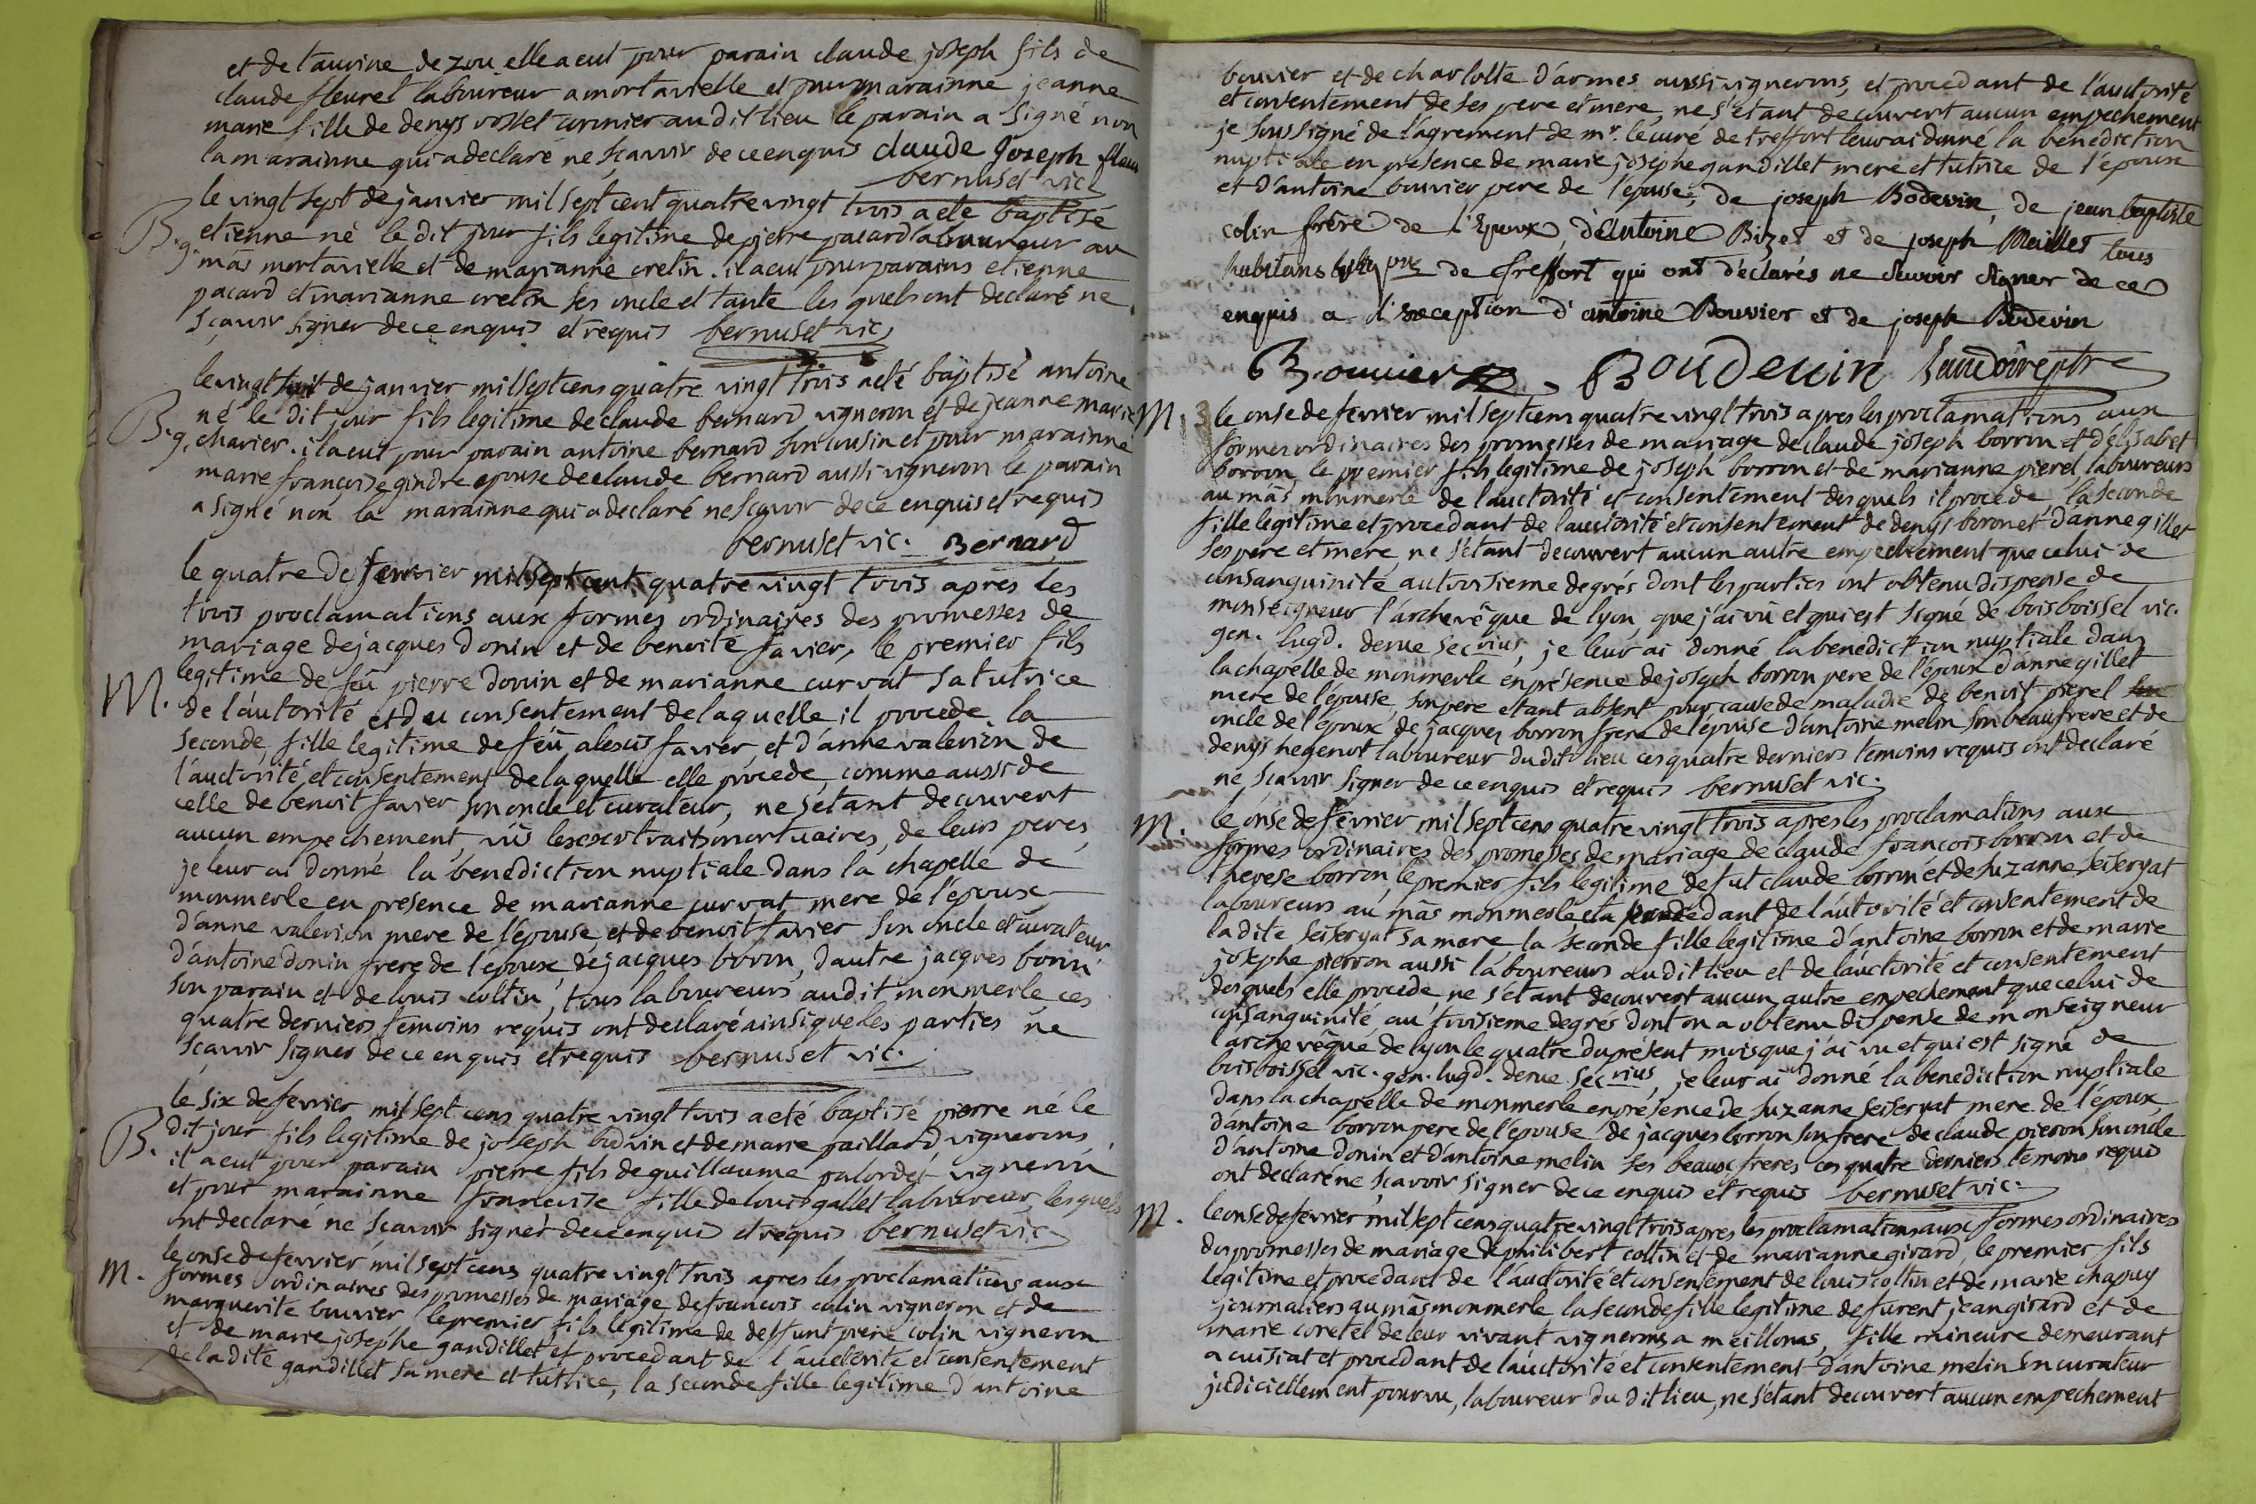 et de laurine dezou elle a eut pour parain claude joseph fils de
claude fleuret laboureur a mortarielle et pour marainne jeanne
marie fille de denys vollet cornier audit lieu le parain a signé non
la marainne qui a declaré ne sçavoir de ce enquis claude joseph fleur
bernuset vic
le vingt sept de janvier mil sept cent quatre vingt trois a eté baptisé
B. g. etienne né le dit jour fils legitime de pierre pacard laboureur au
mas mortarielle et de marianne cretin. il a eut pour parains etienne
pacard et marianne cretin ses oncle et tante les quels ont declaré ne
sçavoir signer de ce enquis et requis bernuset vic
le vingt huit de janvier mil sept cens quatre vingt trois a eté baptisé antoine
né le dit jour fils legitime de claude bernard vigneron et de jeanne marie
B. g. charier. il a eut pour parain antoine bernard son cousin et pour marainne
marie françoise gindre epouse de claude bernard aussi vigneron le parain
a signé non la marainne qui a declaré ne sçavoir de ce enquis et requis
bernuset vic. Bernard
le quatre de fevrier mil sept cent quatre vingt trois après les
trois proclamations aux formes ordinaires des promesses de
mariage de jacques donin et de benoite favier, le premier fils
M. legitime de feû pierre donin et de marianne curvat sa tutrice
de l'autorité et du consentement de laquelle il procede la
seconde fille legitime de feû alexis favier et d'anne valerion de
l'auctorité et consentement de laquelle elle procede, comme aussi de
celle de benoit favier son oncle et curateur, ne s'etant decouvert
aucun empechement, vûs les extraits mortuaires, de leurs peres,
je leur ai donné la benediction nuptiale dans la chapelle de
monmerle en presence de marianne curvat mere de l'epoux
d'anne valerion mere de l'epouse, et de benoit favier son oncle et curateur
d'antoine donin frere de l'epoux de jacques boron, d'autre jacques boron
son parain et de louis coltin, tous laboureurs audit monmerle, ces
quatre derniers temoins requis ont declaré ainsi que les parties ne
sçavoir signer de ce enquis et requis bernuset vic.
le six de fevrier mil sept cens quatre vingt trois a eté baptisé pierre né le
B. dit jour fils legitime de joseph bidvin et de marie paillard, vignerons
il a eut pour parain pierre fils de guillaume palordet vigneron
et pour marainne francoise fille de louis gallet laboureur, les quels
ont declaré ne sçavoir signer de ce enquis et requis bernuset vic
le onse de fevrier mil sept cens quatre vingt trois apres les proclamations aux
M. formes ordinaires des promesses de mariage de francois colin vigneron et de
marguerite bouvier le premier fils legitime de deffunt pierre colin vigneron
et de marie josephe gandillet et procedant de l'auctorité et consentement
de la dite gandillet sa mere et tutrice, la seconde fille legitime d'antoine
bouvier et de charlotte d'armes aussi vignerons, et procedant de l'auctorité
et consentement de ses pere et mere, ne s'etant decouvert aucun empechement
je soussigné de l'agrement de mr. le curé de treffort leur ai donné la benediction
nuptiale en présence de marie josephe gandillet mere et tutrice de l'epoux
et d'antoine bouvier pere de l'epouse, de joseph Bodevin, de jean baptiste
colin frère de l'Epoux, d'antoine Bizet et de joseph Meillet tous
habitans de treffort qui ont déclarés ne sçavoir signer de ce
enquis a l'exception d'antoine Bouvier et de joseph Bodevin
Bouvier Boudevin
M. le onse de fevrier mil sept cens quatre vingt trois apres les proclamations aux
formes ordinaires des promesses de mariage de claude joseph borron et d'elisabet
borron, le premier fils legitime de joseph borron et de marianne pierel laboureurs
au mâs monmerle de l'auctorité et consentement desquels il procede, la seconde
fille legitime et procedant de l'auctorité et consentement de denys boron et d'anne gillet
ses pere et mere, ne s'etant decouvert aucun autre empechement que celui de
consanguinité au troisieme degrés dont les parties ont obtenu dispense de
monseigneur l'archevêque de lyon, que j'ai vû et qui est signé de boisboissel vic.
gen. lugd. derue secrius, je leur ai donné la benediction nuptiale dans
la chapelle de monmerle en présence de joseph borron pere de l'époux d'anne gillet
mere de l'épouse, son père etant absent pour cause de maladie de benoit pierel
oncle de l'epoux de jacques borron frere de l'epouse d'antoine melin son beaufrere et de
denys hegenot laboureur dudit lieu ces quatre derniers temoins requis ont declaré
ne sçavoir signer de ce enquis et requis bernuset vic.
M. le onse de février mil sept cens quatre vingt trois apres les proclamations aux
formes ordinaires des promesses de mariage de claude francois borron et de
therese borron, le premier fils legitime de fut claude borron et de suzanne seiservat
laboureurs au mâs monmerle et procedant de l'autorité et consentement de
la dite seiservat sa mere, la seconde fille legitime d'antoine borron et de marie
josephe pierron aussi laboureurs audit lieu et de l'auctorité et consentement
desquels elle procede, ne s'etant decouvert aucun autre empechement que celui de
consanguinité au troisieme degrés dont on a obtenu dispense de monseigneur
l'archevêque de lyon le quatre du présent mois que j'ai vu et qui est signé de
boisboissel vic. gen. lugd. derue secrius, je leur ai donné la benediction nuptiale
dans la chapelle de monmerle en présence de suzanne seiservat mere de l'époux
d'antoine borron pere de l'epouse de jacques borron son frere de claude pieron son oncle
d'antoine donin et d'antoine melin ses beaux freres ces quatre derniers temoins requis
ont declaré ne sçavoir signer de ce enquis et requis bernuset vic.
M. le onse de fevrier mil sept cens quatre vingt trois apres les proclamations aux formes ordinaires
des promesses de mariage de philibert coltin et de marianne girard, le premier fils
legitime et procedant de l'auctorité et consentement de louis coltin et de marie chapuy
journaliers au mâs monmerle la seconde fille legitime de furent jean girard et de
marie coretel de leur vivant vignerons a meillonas, fille mineure demeurant
a cuisiat et procedant de l'auctorité et consentement d'antoine melin son curateur
judiciellement pourvu, laboureur du dit lieu, ne s'etant decouvert aucun empechement